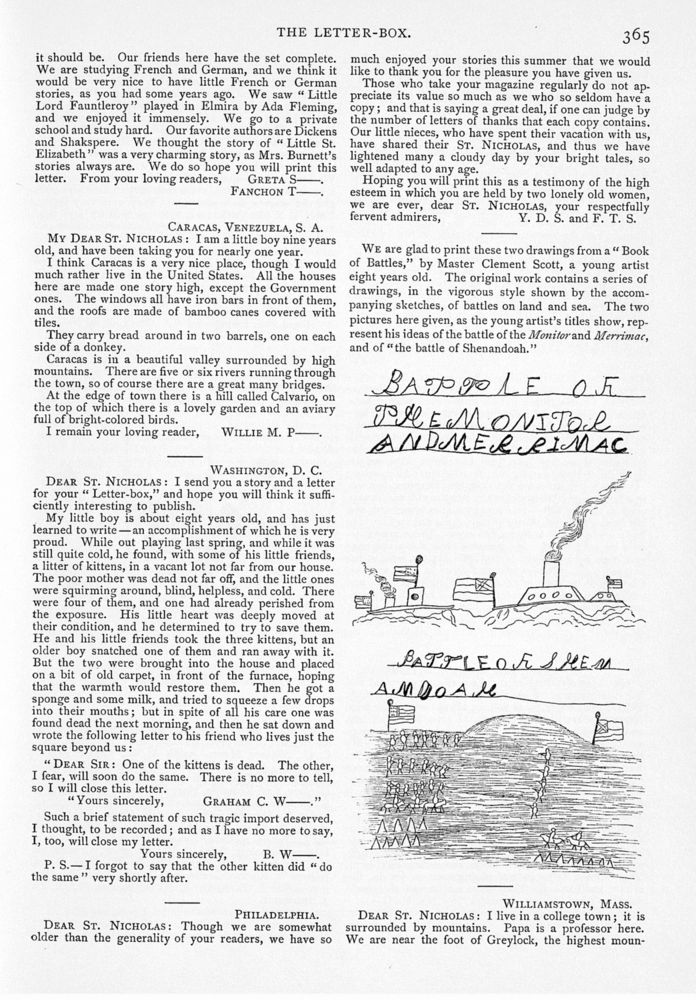 THE LETTER-BOX.
365
it should be. Our friends here have the set complete.
We are studying French and German, and we think it
would be very nice to have little French or German
stories, as you had some years ago. We saw "Little
Lord Fauntleroy" played in Elmira by Ada Fleming,
and we enjoyed it immensely. We go to a private
school and study hard. Our favorite authors are Dickens
and Shakspere. We thought the story of "Little St.
Elizabeth" was a very charming story, as Mrs. Burnett's
stories always are. We do so hope you will print this
letter. From your loving readers, GRETA S——.
FANCHON T——.
CARACAS, VENEZUELA, S. A.
MY DEAR ST. NICHOLAS: I am a little boy nine years
old, and have been taking you for nearly one year.
I think Caracas is a very nice place, though I would
much rather live in the United States. All the houses
here are made one story high, except the Government
ones. The windows all have iron bars in front of them,
and the roofs are made of bamboo canes covered with
tiles.
They carry bread around in two barrels, one on each
side of a donkey.
Caracas is in a beautiful valley surrounded by high
mountains. There are five or six rivers running through
the town, so of course there are a great many bridges.
At the edge of town there is a hill called Calvario, on
the top of which there is a lovely garden and an aviary
full of bright-colored birds.
I remain your loving reader, WILLIE M. P——.
WASHINGTON, D. C.
DEAR ST. NICHOLAS: I send you a story and a letter
for your "Letter-box," and hope you will think it suffi-
ciently interesting to publish.
My little boy is about eight years old, and has just
learned to write—an accomplishment of which he is very
proud. While out playing last spring, and while it was
still quite cold, he found, with some of his little friends,
a litter of kittens, in a vacant lot not far from our house.
The poor mother was dead not far off, and the little ones
were squirming around, blind, helpless, and cold. There
were four of them, and one had already perished from
the exposure. His little heart was deeply moved at
their condition, and he determined to try to save them.
He and his little friends took the three kittens, but an
older boy snatched one of them and ran away with it.
But the two were brought into the house and placed
on a bit of old carpet, in front of the furnace, hoping
that the warmth would restore them. Then he got a
sponge and some milk, and tried to squeeze a few drops
into their mouths; but in spite of all his care one was
found dead the next morning, and then he sat down and
wrote the following letter to his friend who lives just the
square beyond us:
"DEAR SIR: One of the kittens is dead. The other,
I fear, will soon do the same. There is no more to tell,
so I will close this letter.
"Yours sincerely, GRAHAM C. W——."
Such a brief statement of such tragic import deserved,
I thought, to be recorded; and as I have no more to say,
I, too, will close my letter.
Yours sincerely, B. W——.
P. S.—I forgot to say that the other kitten did "do
the same" very shortly after.
PHILADELPHIA.
DEAR ST. NICHOLAS: Though we are somewhat
older than the generality of your readers, we have so
much enjoyed your stories this summer that we would
like to thank you for the pleasure you have given us.
Those who take your magazine regularly do not ap-
preciate its value so much as we who so seldom have a
copy; and that is saying a great deal, if one can judge by
the number of letters of thanks that each copy contains.
Our little nieces, who have spent their vacation with us,
have shared their ST. NICHOLAS, and thus we have
lightened many a cloudy day by your bright tales, so
well adapted to any age.
Hoping you will print this as a testimony of the high
esteem in which you are held by two lonely old women,
we are ever, dear ST. NICHOLAS, your respectfully
fervent admirers, Y. D. S. and F. T. S.
WE are glad to print these two drawings from a "Book
of Battles," by Master Clement Scott, a young artist
eight years old. The original work contains a series of
drawings, in the vigorous style shown by the accom-
panying sketches, of battles on land and sea. The two
pictures here given, as the young artist's titles show, rep-
resent his ideas of the battle of the Monitor and Merrimac,
and of "the battle of Shenandoah."
BATTLE OF
THE MONITOR
AND MERRIMAC
BATTLE OF SHEN
ANDOAH
WILLIAMSTOWN, MASS.
DEAR ST. NICHOLAS: I live in a college town; it is
surrounded by mountains. Papa is a professor here.
We are near the foot of Greylock, the highest moun-